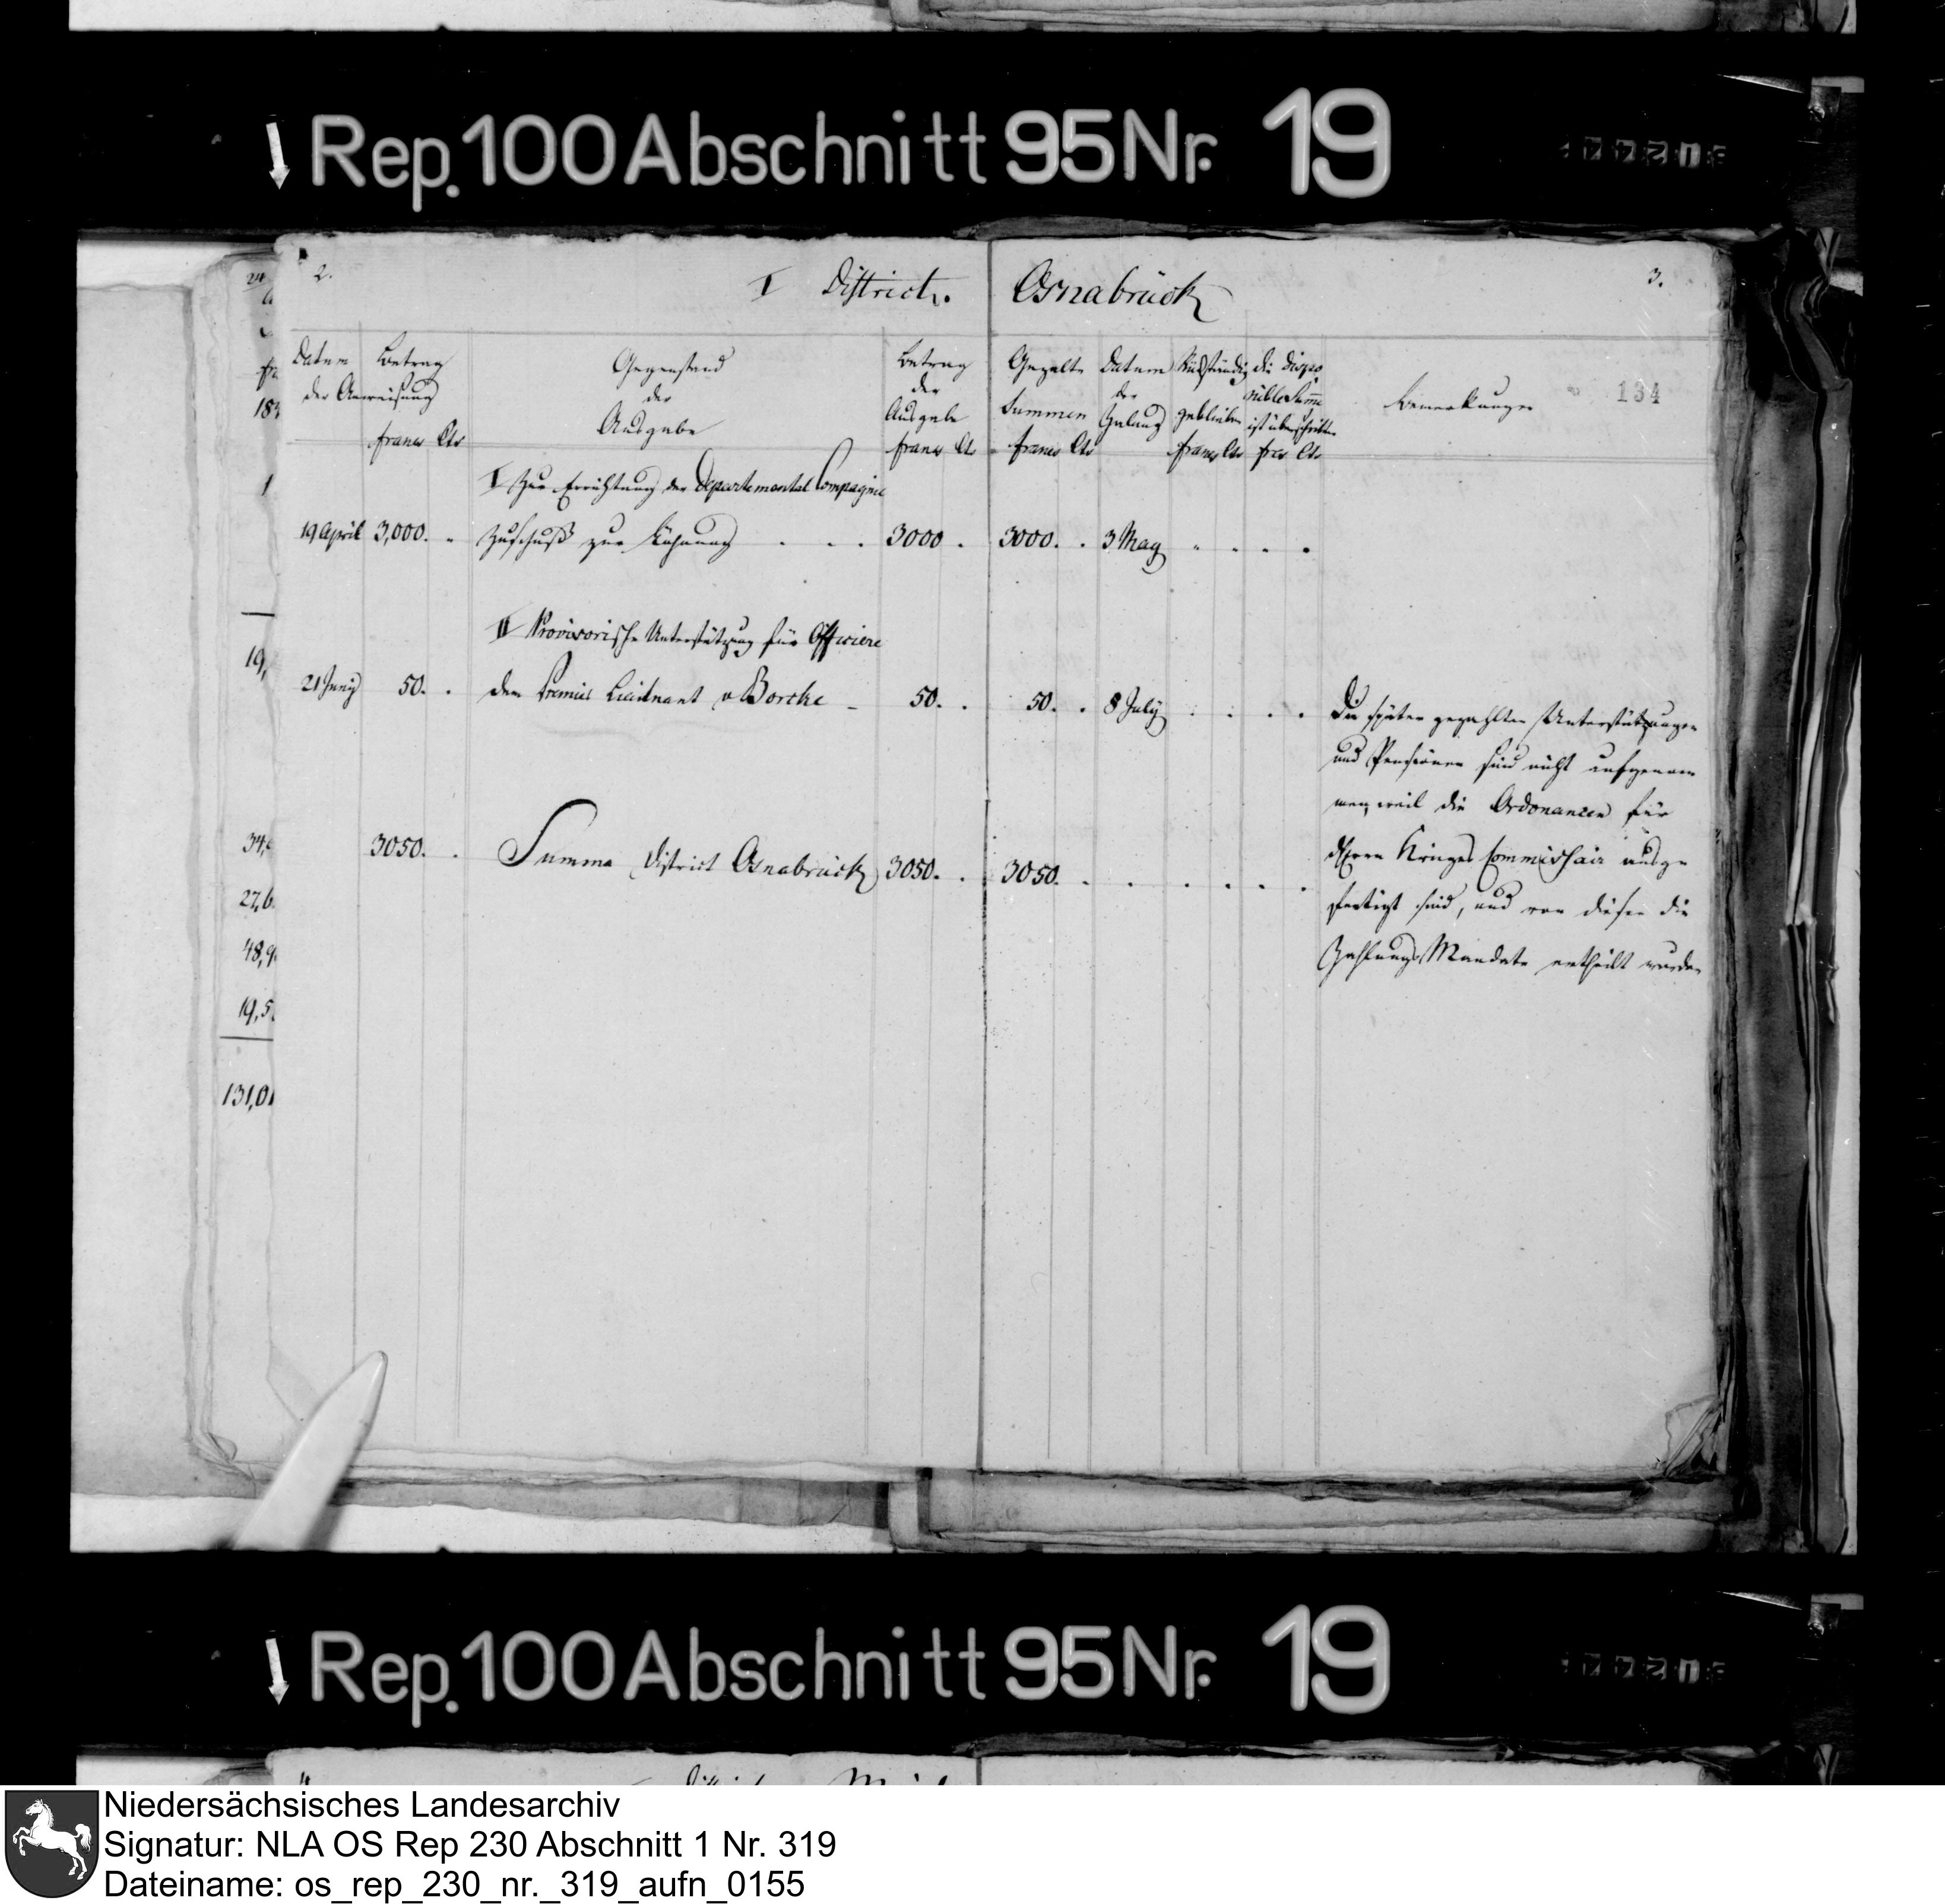 Rep. 100 Abschnitt 95 Nr. 19
2.
I District.
Osnabrück
3.
134
Datum Betrag
der Anweisung
francs Cts
Gegenstand
der
Ausgabe
Betrag
der
Ausgabe
francs Cts
Gezalte
Summen
francs Cts
Datum
der
Zalung
Rückständig
geblieben
francs Cts
die dispo
nible Summe
ist überschritten
frcs Cts
Bemerkungen
I Zur Errichtung der Departemental Compagnie
19 April 3,000. Zuschuß zur Löhnung 3000 3000. 3 May
II Provisorische Unterstützung für Officiere
21 Juny 50. dem Premier Lieutnant v Borcke 50. 50. 8 July
Die später gezahlten Unterstützungen
und Pensionen sind nicht aufgenom
men, weil die Ordonanzen für
Herrn Krieges Commissair ausge
fertigt sind, und von diesem die
Zahlungs Mandate ertheilt wurden
3050. Summa District Osnabrück 3050. 3050.
1
19,
34,
27,6
48,9
19,5
131,01
Rep. 100 Abschnitt 95 Nr. 19
Niedersächsisches Landesarchiv
Signatur: NLA OS Rep 230 Abschnitt 1 Nr. 319
Dateiname: os_rep_230_nr._319_aufn_0155